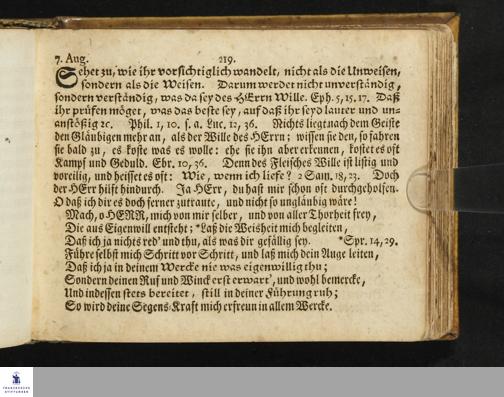 7. Aug. 219.
Sehet zu, wie ihr vorsichtiglich wandelt, nicht als die Unweisen,
sondern als die Weisen. Darum werdet nicht unverständig,
sondern verständig, was da sey des HErrn Wille. Eph. 5, 15. 17. Daß
ihr prüfen möget, was das beste sey, auf daß ihr seyd lauter und un-
anstößig ꝛc. Phil. 1, 10. s. a. Luc. 12, 36. Nichts liegt nach dem Geiste
den Gläubigen mehr an, als der Wille des HErrn; wissen sie den, so fahren
sie bald zu, es koste was es wolle: ehe sie ihn aber erkennen, kostet es oft
Kampf und Geduld. Ebr. 10, 36. Denn des Fleisches Wille ist listig und
voreilig, und heisset es oft: Wie, wenn ich liefe? 2 Sam. 18, 23. Doch
der HErr hilft hindurch. Ja HErr, du hast mir schon oft durchgeholfen.
O daß ich dir es doch ferner zutraute, und nicht so ungläubig wäre!
Mach, o HERR, mich von mir selber, und von aller Thorheit frey,
Die aus Eigenwill entsteht; *Laß die Weisheit mich begleiten,
Daß ich ja nichts red' und thu, als was dir gefällig sey. *Spr. 14, 29.
Führe selbst mich Schritt vor Schritt, und laß mich dein Auge leiten,
Daß ich ja in deinem Wercke nie was eigenwillig thu;
Sondern deinen Ruf und Winck erst erwart', und wohl bemercke,
Und indessen stets bereitet, still in deiner Führung ruh;
So wird deine Segens-Kraft mich erfreun in allem Wercke.
FRANCKESCHE
STIFTUNGEN